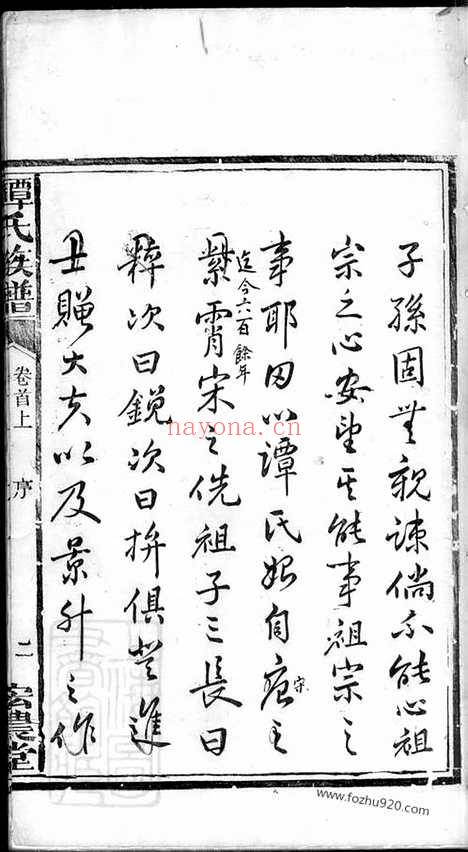 子孫固無親疎倘不能心祖
宗之心安望其能事祖宗之
事耶因以譚氏始自唐宋之
迄今六百餘年
紫霄宋之侁祖子三長曰
粹次曰鋭次曰拚俱登進
士賜大夫以及景升之作
譚氏族譜
卷首上
序
二
宏農堂
nayona.cn
www.fozhu920.com